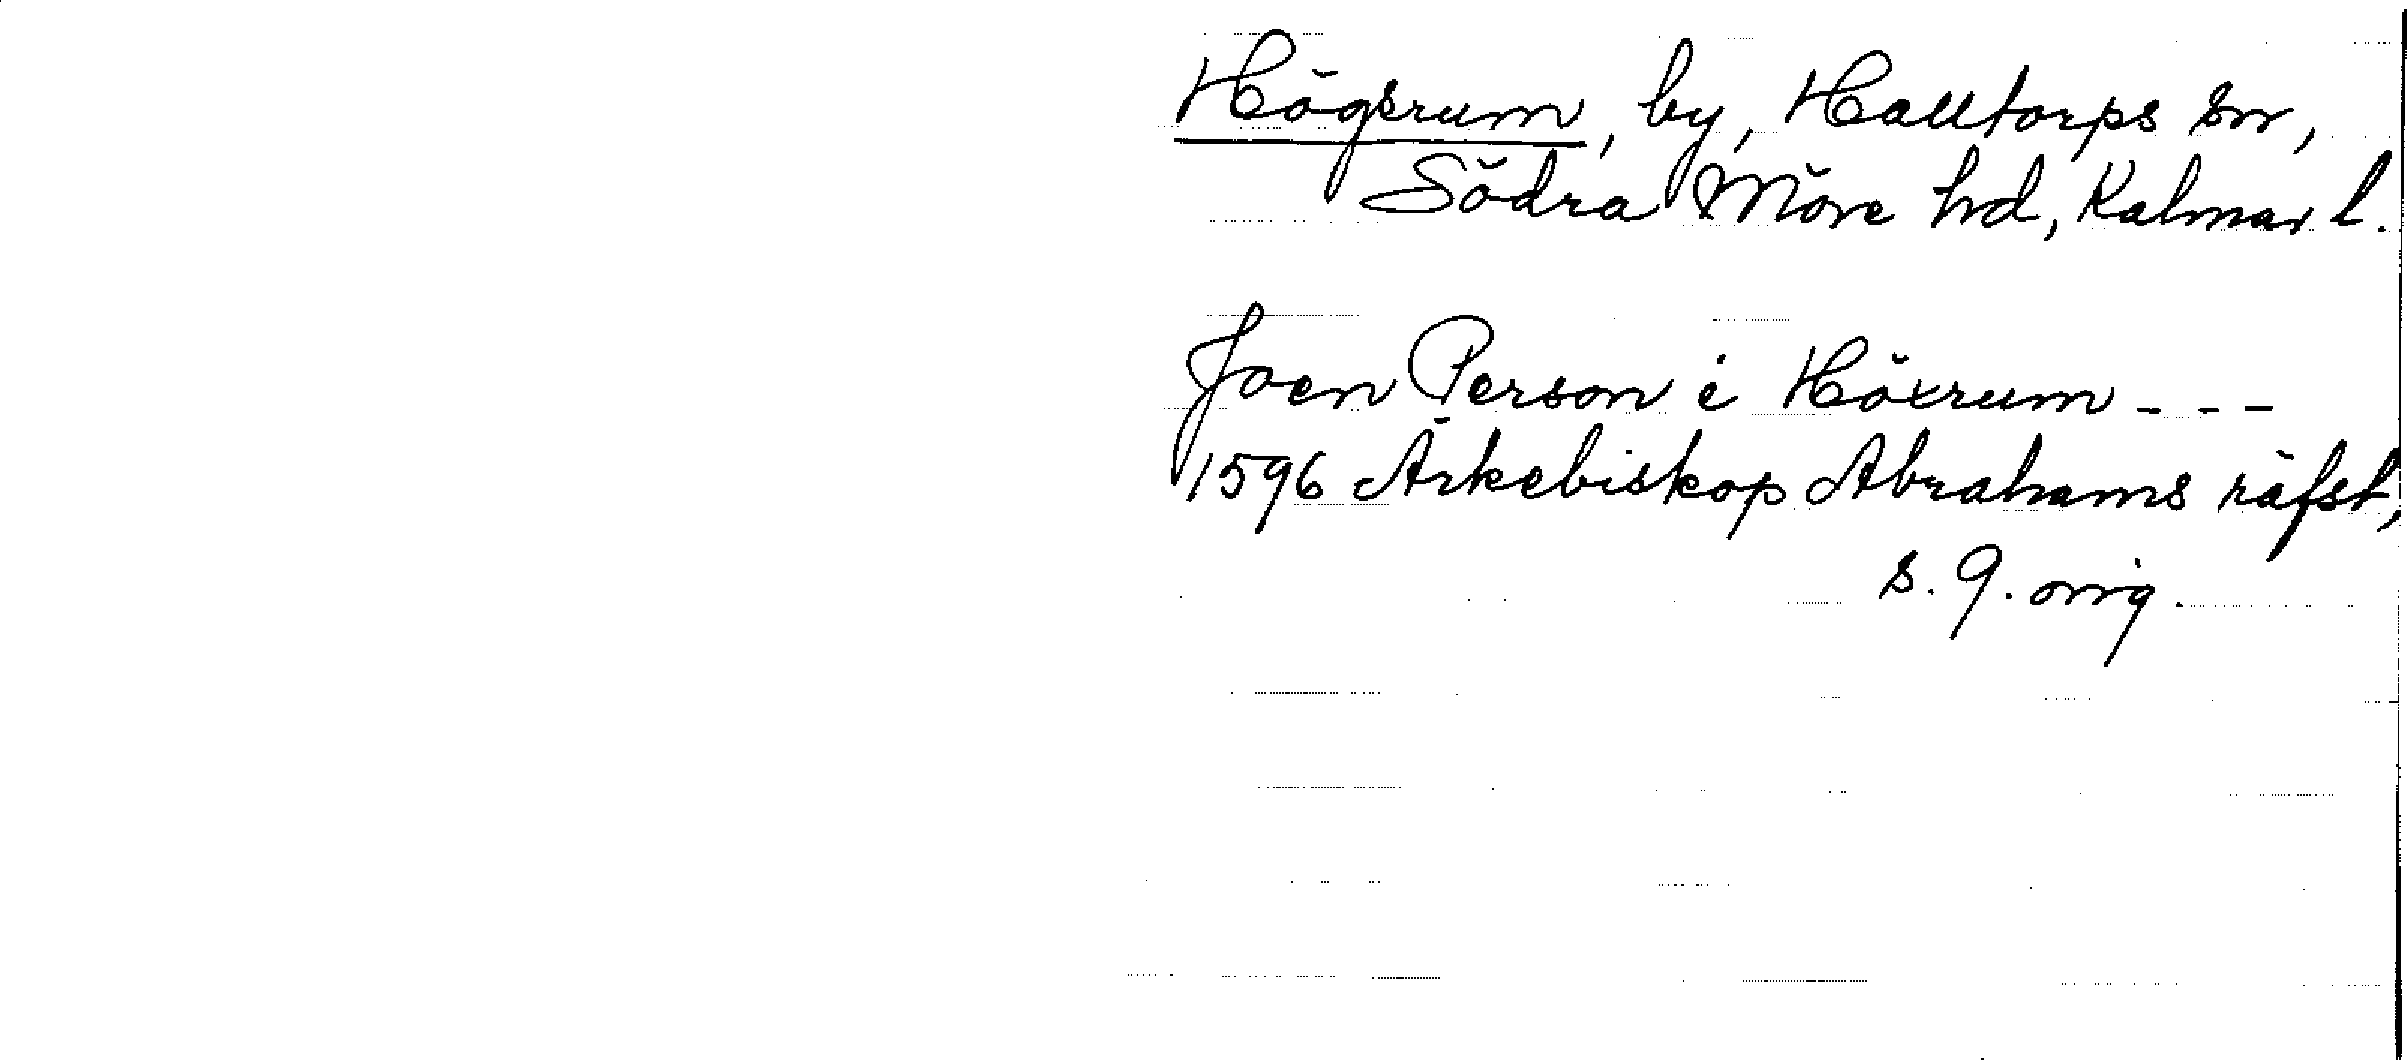 Högsrum, by, Halltorps sn,
Södra Möre hd, Kalmar l.
Joen Person i Höxrum - - -
1596 Ärkebiskop Abrahams räfst,
s. 9. orig.